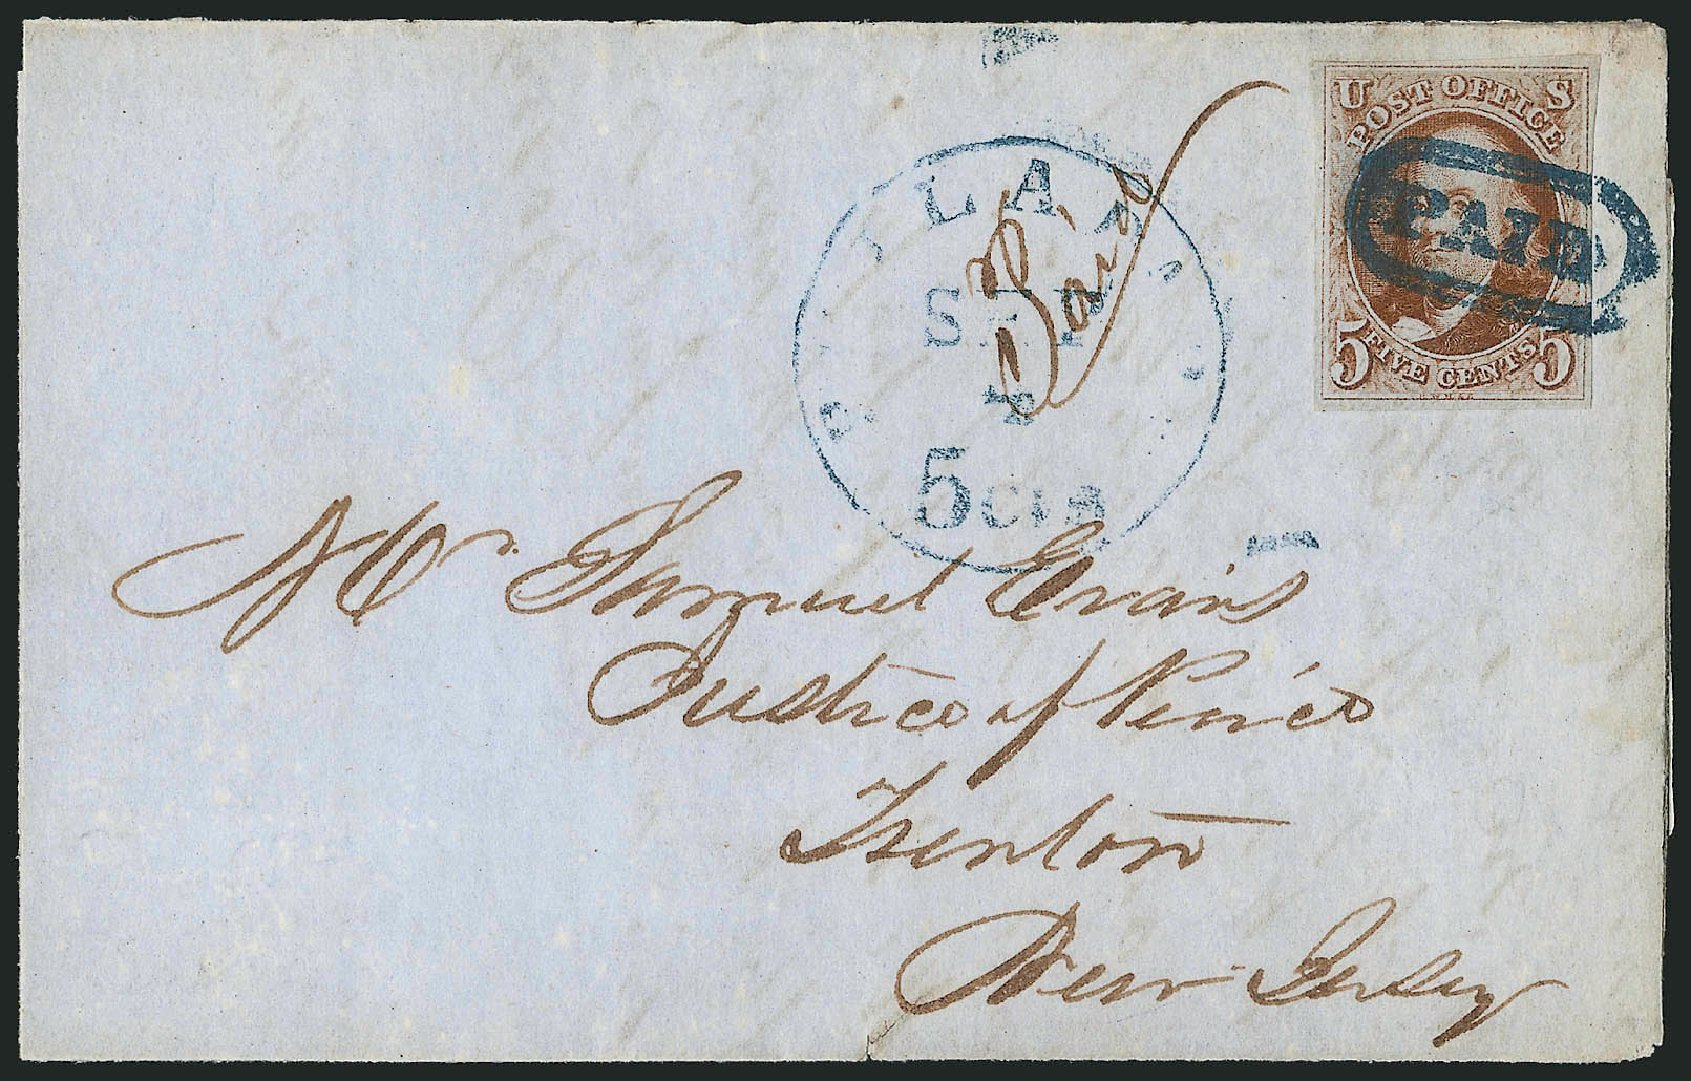 U S
POST OFFICE
PAID
5 FIVE CENTS 5
Paid
SEP
4
5 Cts
Mr Samuel Evans
Justice of Peace
Trenton
New Jersey